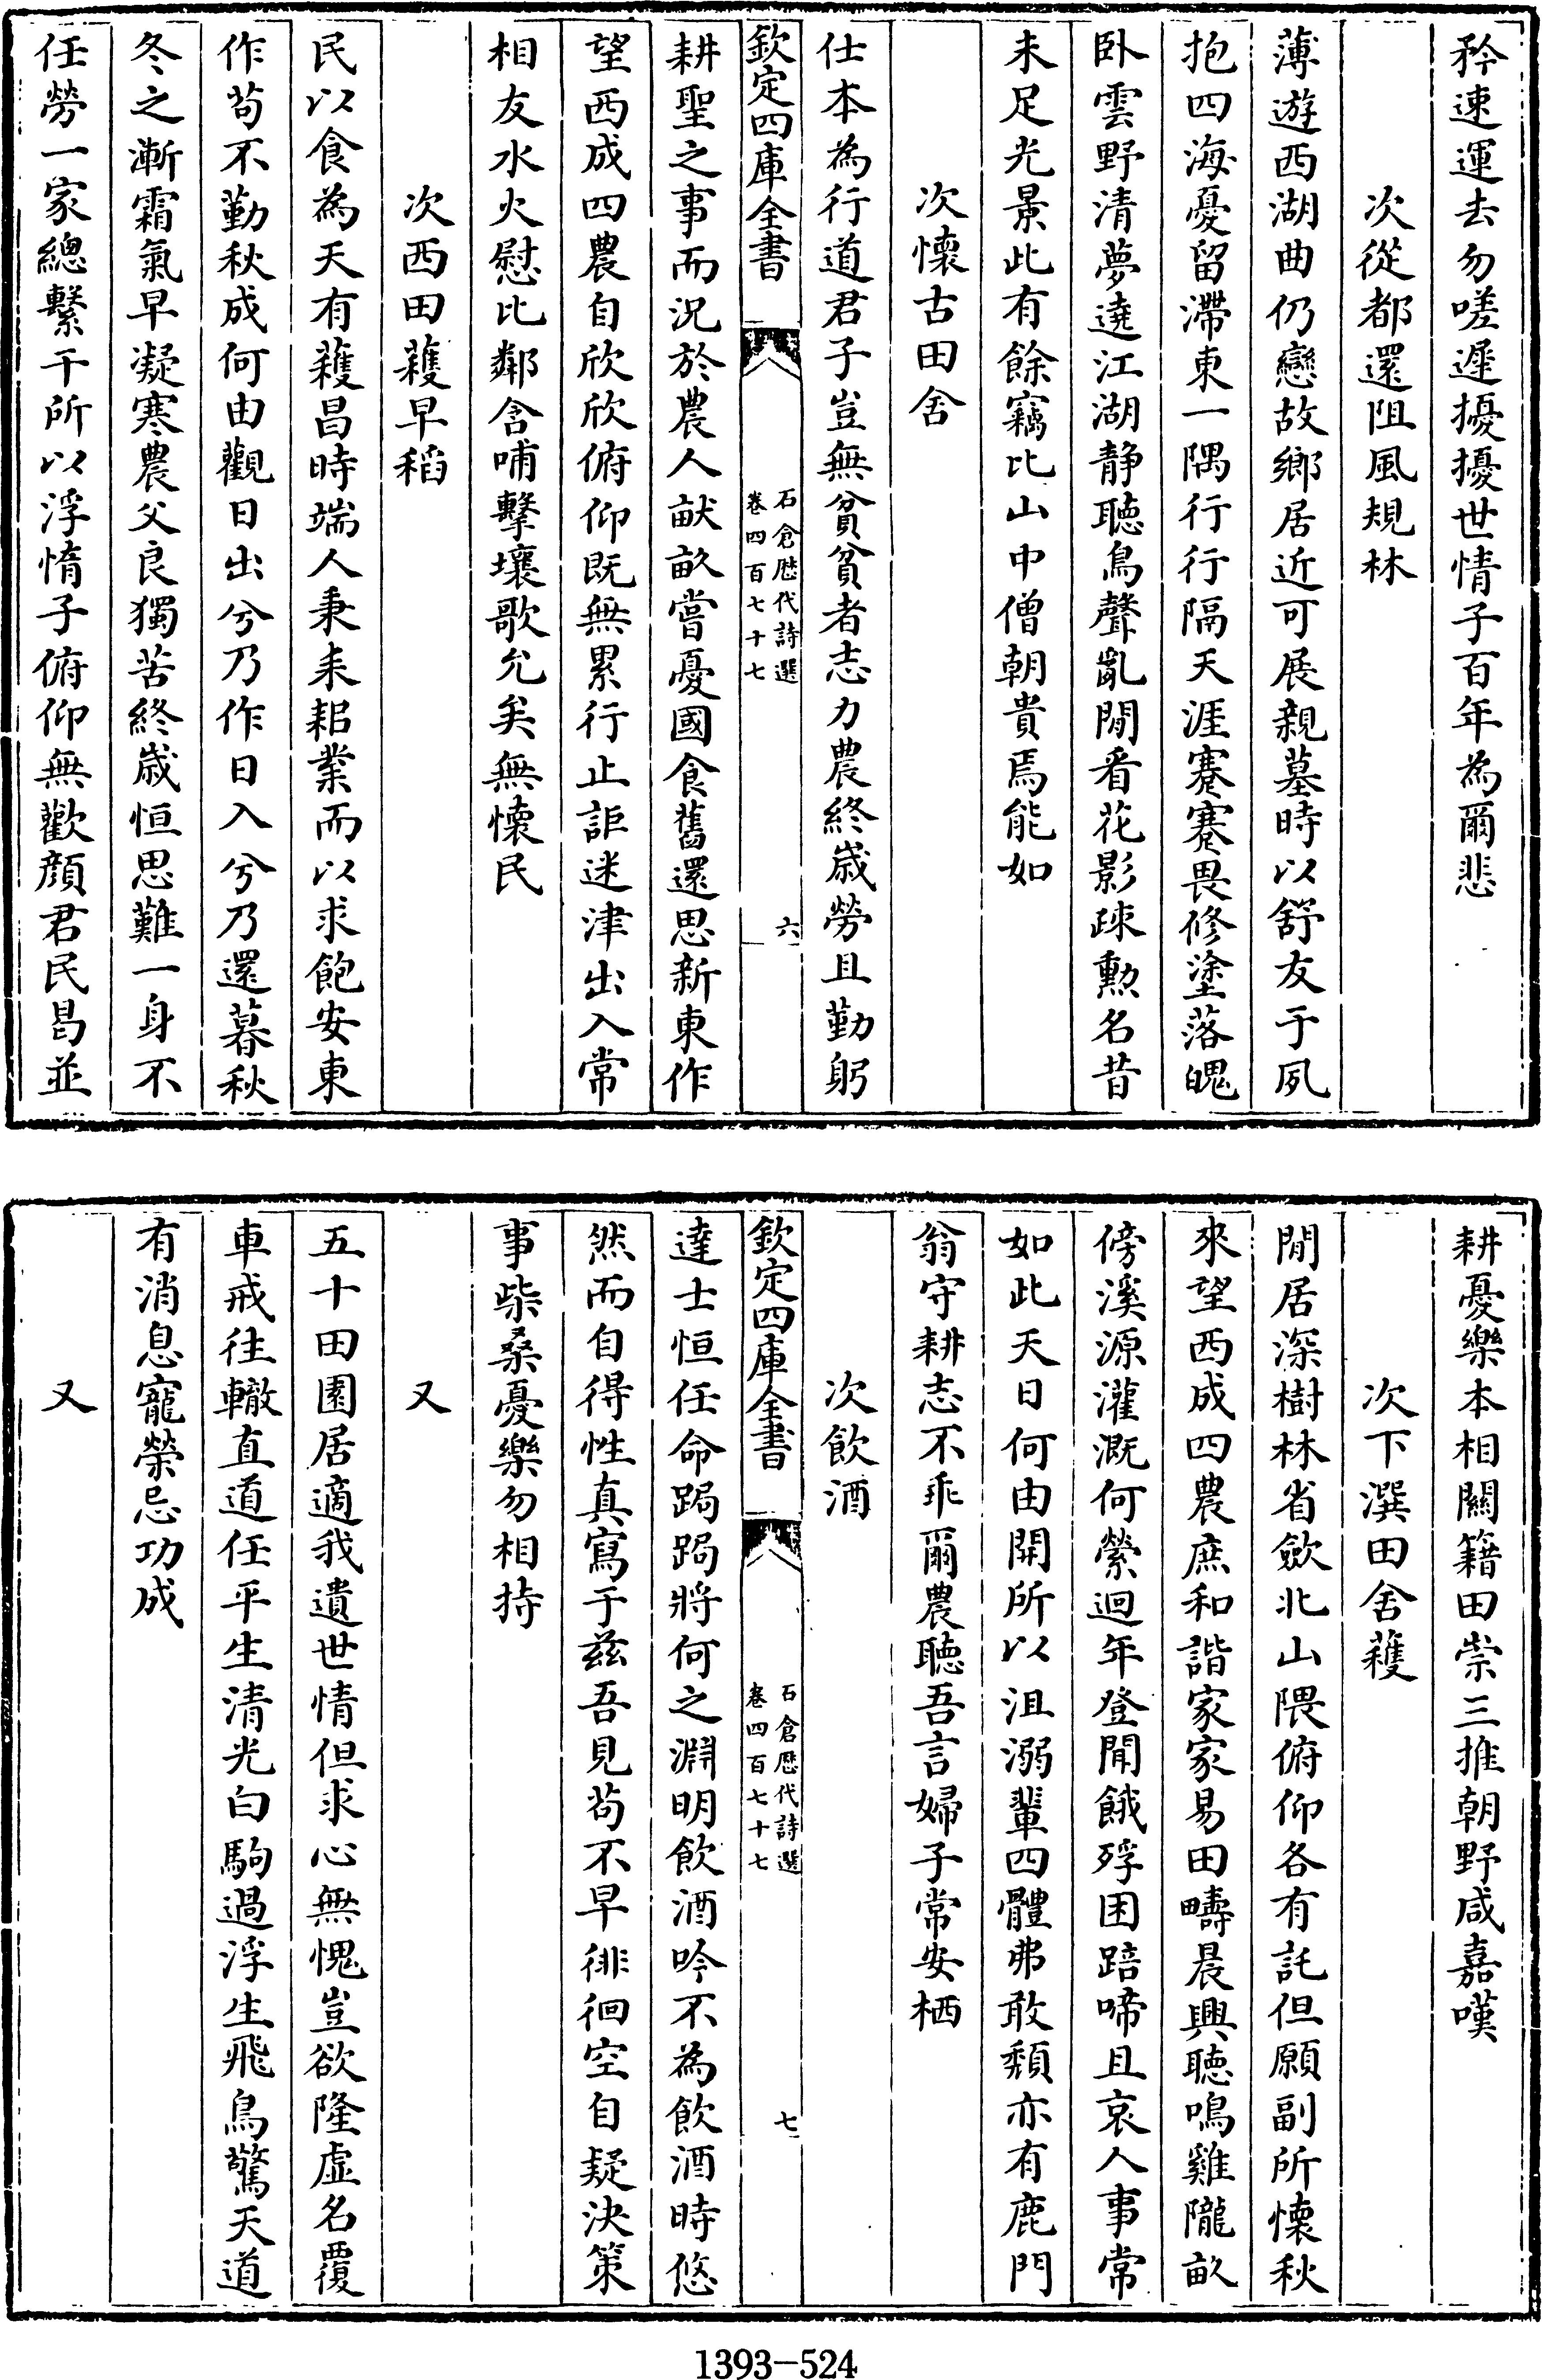 矜速運去勿嗟遲擾擾世情子百年為爾悲
次從都還阻風規林
薄遊西湖曲仍戀故鄉居近可展親墓時以舒友于夙
抱四海憂留滯東一隅行行隔天涯蹇蹇畏修塗落魄
卧雲野清夢遶江湖静聽鳥聲亂閒看花影疎勲名昔
未足光景此有餘竊比山中僧朝貴焉能如
次懷古田舍
仕本為行道君子豈無貧貧者志力農終歲勞且勤躬
欽定四庫全書
石倉歷代詩選
卷四百七十七
六
耕聖之事而況於農人畎畝嘗憂國食舊還思新東作
望西成四農自欣欣俯仰既無累行止詎迷津出入常
相友水火慰比鄰含哺擊壤歌允矣無懷民
次西田穫早稻
民以食為天有穫昌時端人秉耒耜業而以求飽安東
作苟不勤秋成何由觀日出兮乃作日入兮乃還暮秋
冬之漸霜氣早凝寒農父良獨苦終歲恒思難一身不
任勞一家總繫干所以浮惰子俯仰無歡顔君民曷並
耕憂樂本相關籍田崇三推朝野咸嘉嘆
次下潠田舍穫
閒居深樹林省歛北山隈俯仰各有託但願副所懷秋
來望西成四農庶和諧家家易田疇晨興聽鳴雞隴畝
傍溪源灌溉何縈迴年登閒餓殍困踣啼且哀人事常
如此天日何由開所以沮溺輩四體弗敢頽亦有鹿門
翁守耕志不乖爾農聽吾言婦子常安栖
次飲酒
欽定四庫全書
石倉歷代詩選
卷四百七十七
七
達士恒任命跼跼將何之淵明飲酒吟不為飲酒時悠
然而自得性真寫于兹吾見苟不早徘徊空自疑決策
事柴桑憂樂勿相持
又
五十田園居適我遺世情但求心無愧豈欲隆虛名覆
車戒往轍直道任平生清光白駒過浮生飛鳥驚天道
有消息寵榮忌功成
又
1393-524